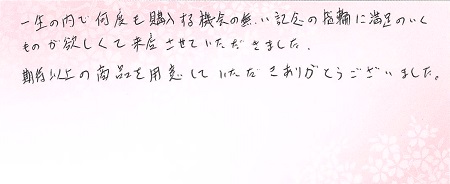 一生の内で何度も購入する機会の無い記念の指輪に満足のいく
ものが欲しくて来店させていただきました.
期待以上の商品を用意していただきありがとうございました。